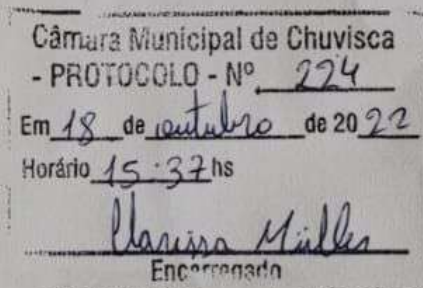 Câmara Municipal de Chuvisca
- PROTOCOLO - Nº 224
Em 18 de outubro de 2022
Horário 15:37 hs
Clarissa Müller
Encarregado